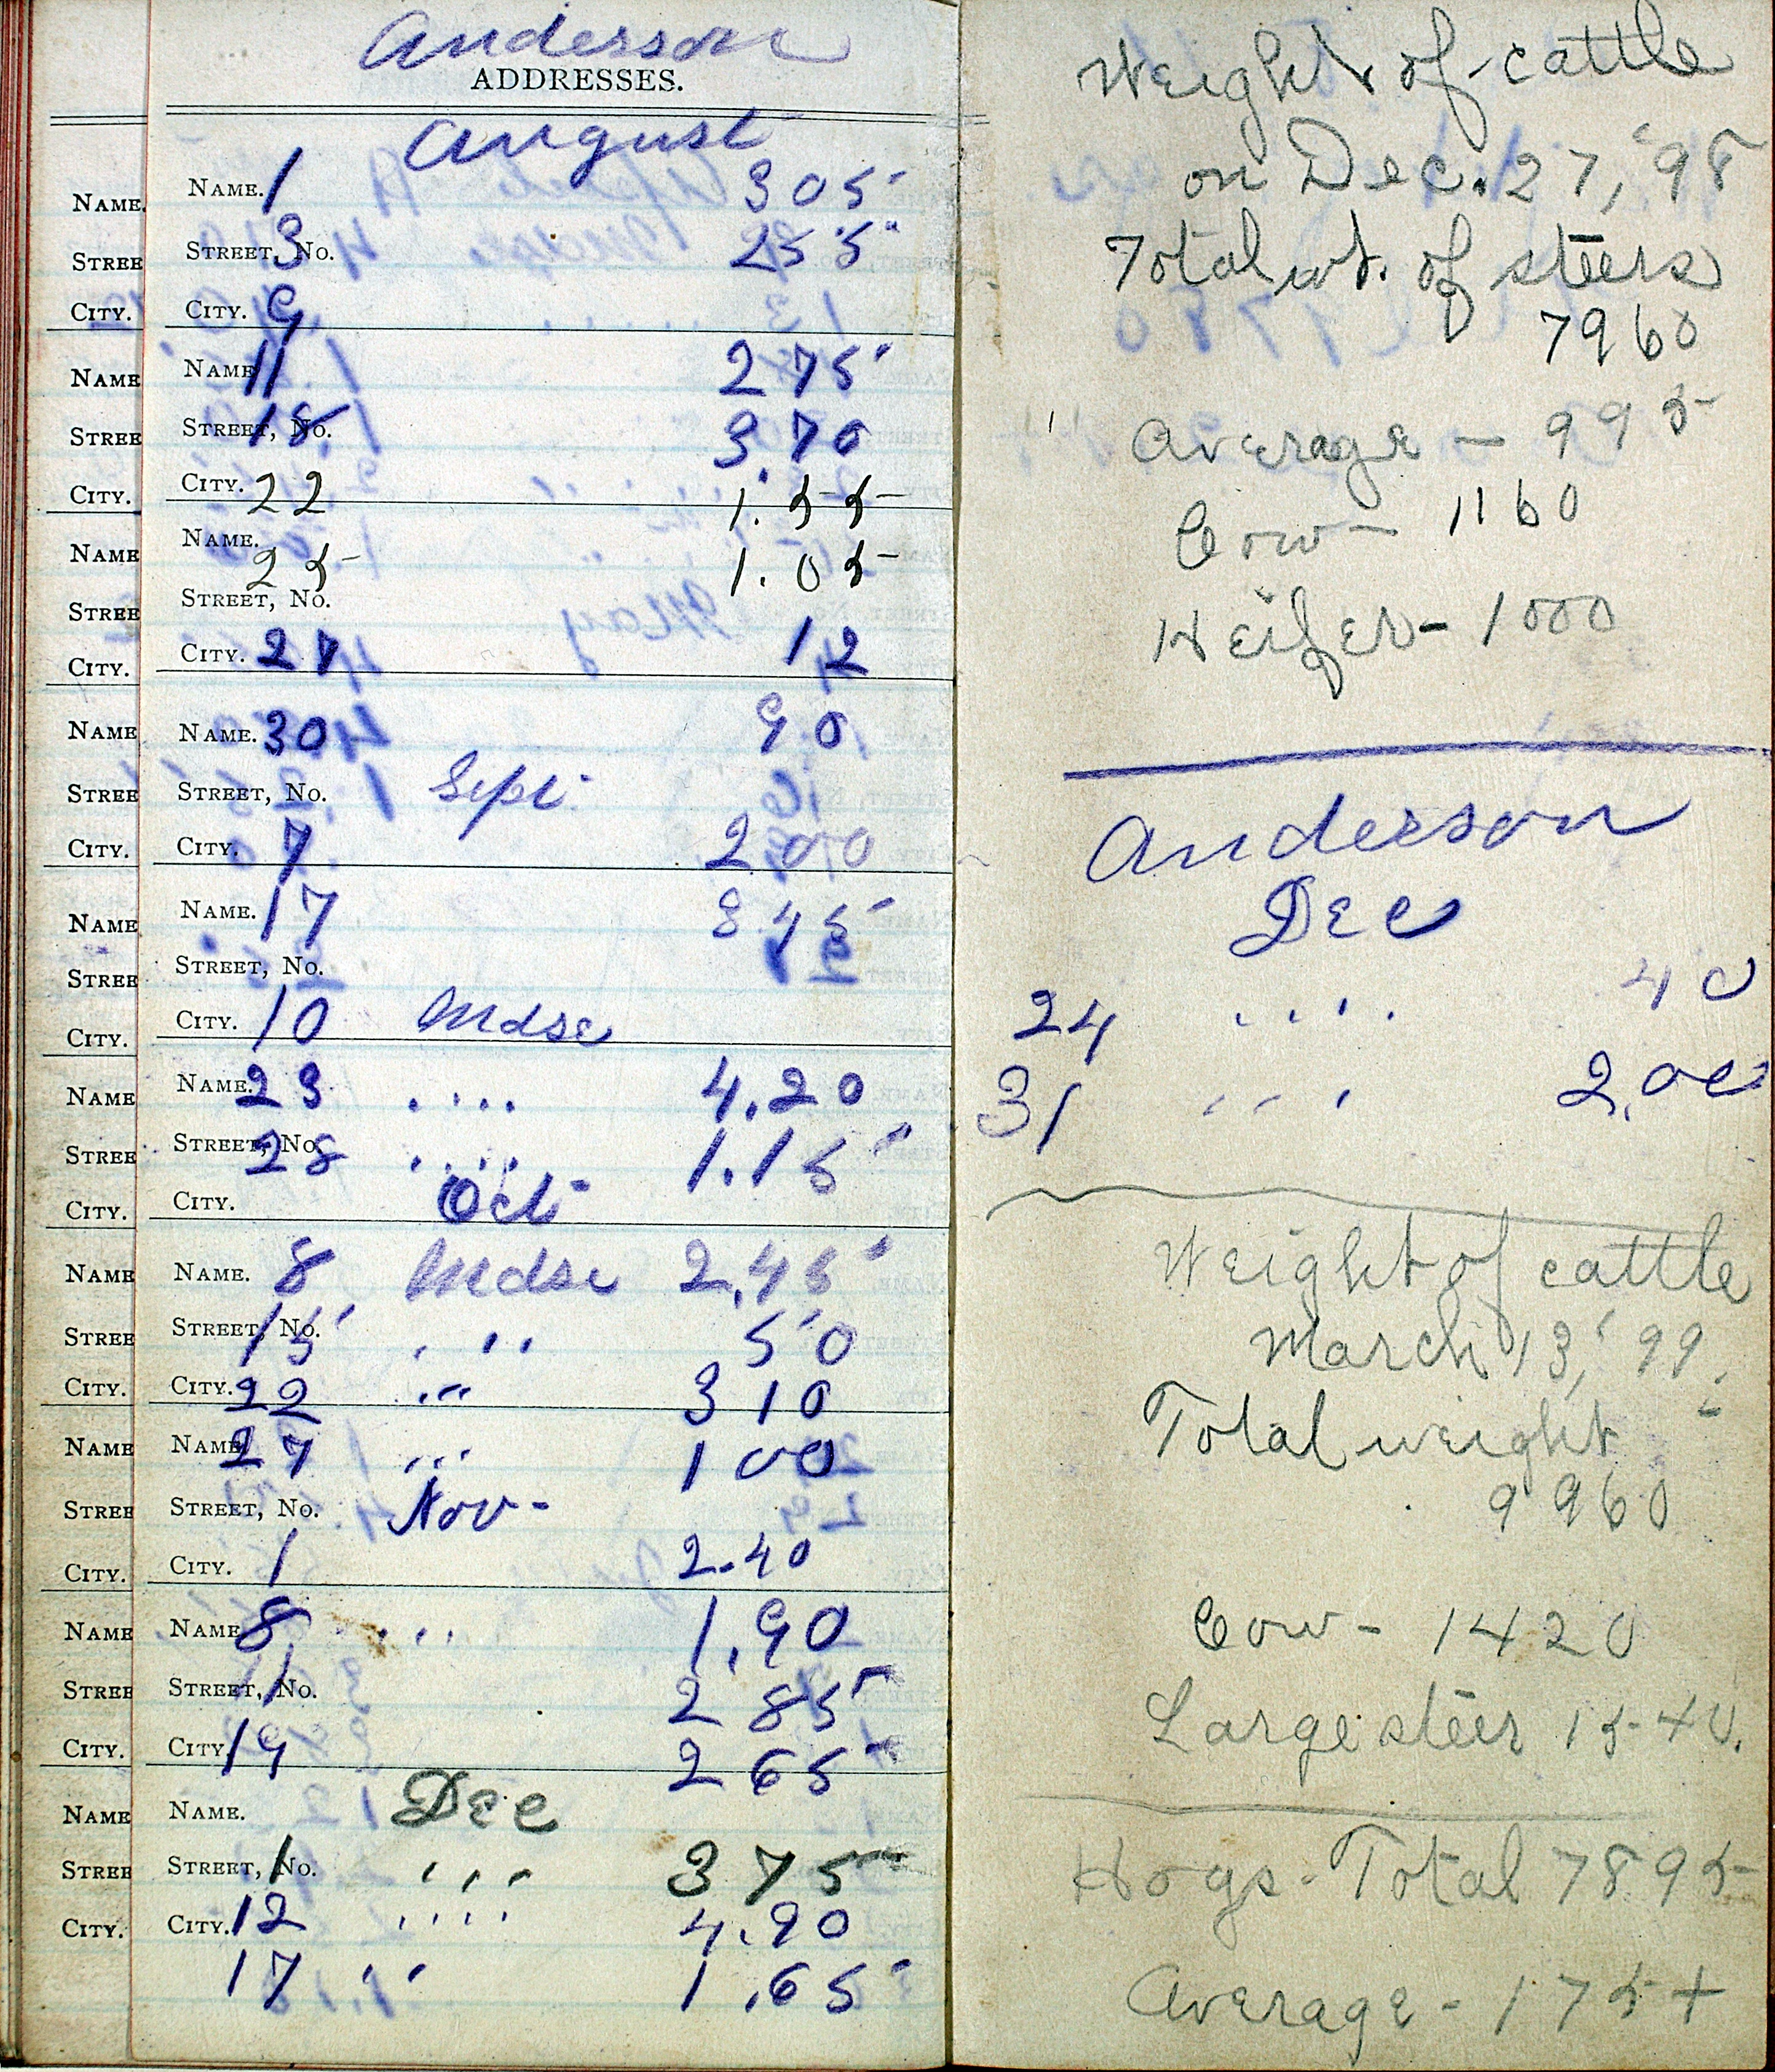 Anderson
ADDRESSES.
August
NAME. NAME. 1 305
STREE STREET, No. 3 255
CITY. CITY. 9
NAME NAME 11 275
STREE STREET, No. 18 3.70
CITY. CITY. 22 1.55
NAME NAME. 25 1.05
STREE STREET, No.
CITY. CITY. 27 12
NAME NAME. 30 90
STREE STREET, No. Sept.
CITY. CITY. 7 200
NAME NAME. 17 345
STREE STREET, No.
CITY. CITY. 10 Mdse
NAME NAME. 23 .... 4.20
STREE STREET, No. 28 .... 1.15
CITY. CITY. Oct-
NAME NAME. 8 Mdse 2.45
STREE STREET, No. 15 ... 50
CITY. CITY. 22 ... 310
NAME NAME 27 ... 100
STREE STREET, No. Nov-
CITY. CITY. 1 2.40
NAME NAME 8 ... 1.90
STREE STREET, No. 11 285
CITY. CITY. 19 265
NAME NAME. Dec
STREE STREET, No. 1 ,,, 375
CITY. CITY. 12 '''' 4.90
17 '' 1.65
Weight of cattle
on Dec. 27, '98
Total wt. of steers
7960
Average - 995
Cow - 1160
Heifer - 1000
Anderson
Dec
24 .... 40
31 ... 2.00
Weight of cattle
March 13, '99.
Total weight
9960
Cow - 1420
Large steer 1540.
Hogs - Total 7895
Average - 175+